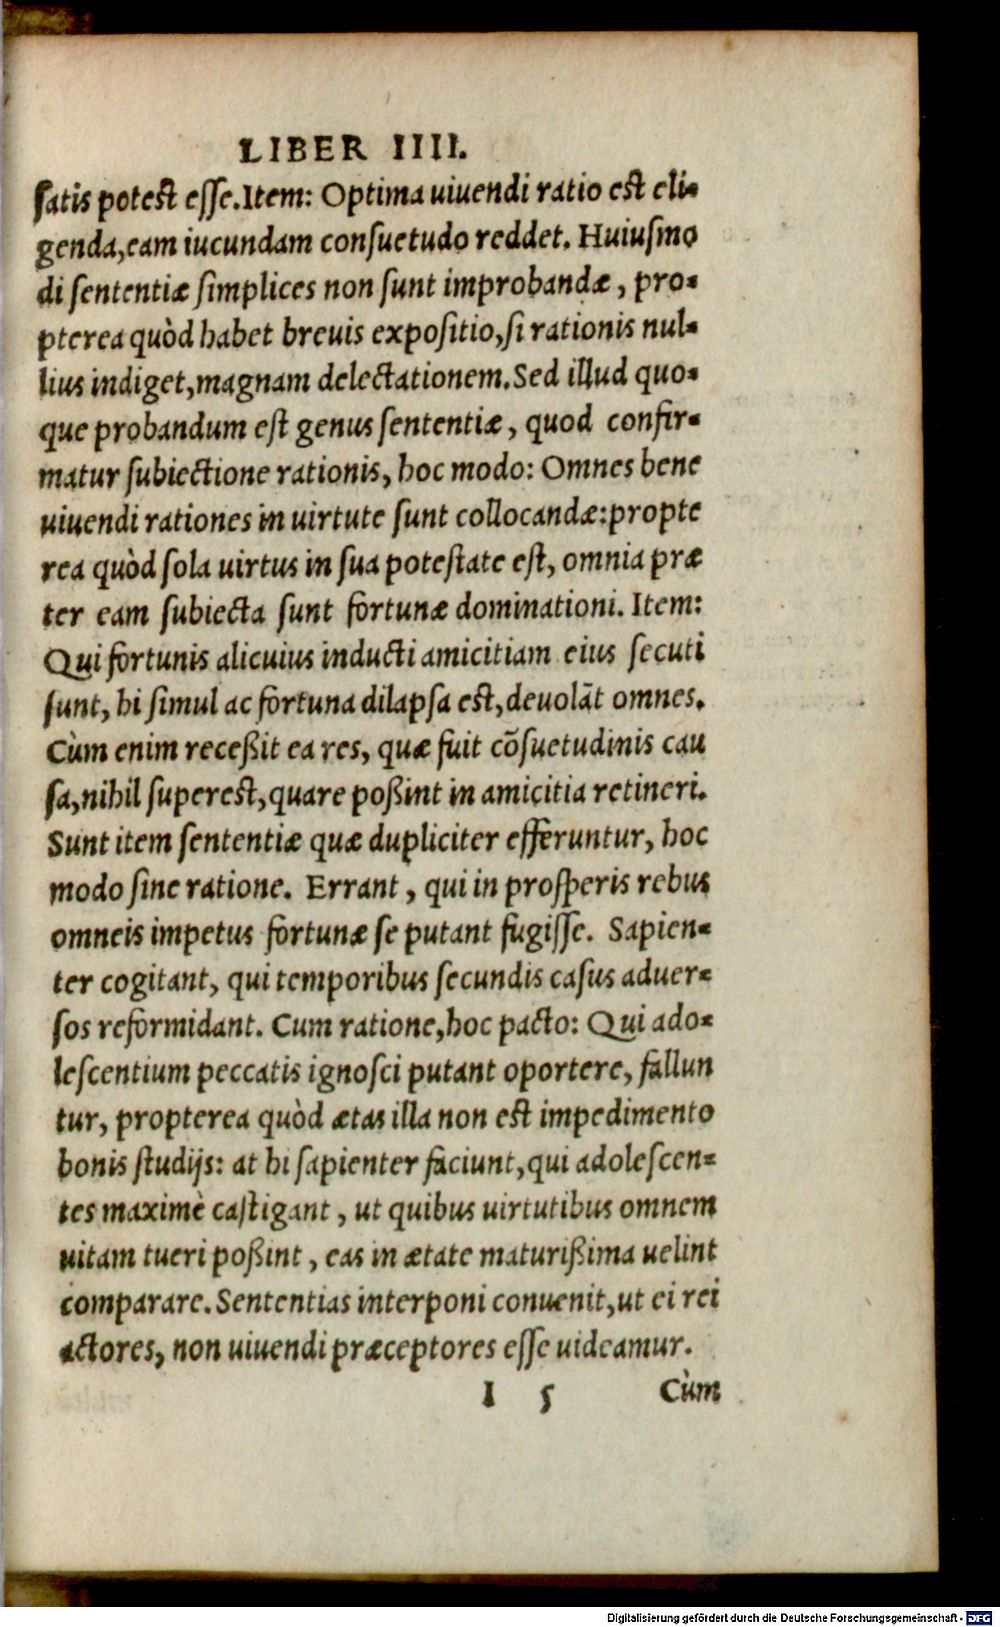 LIBER IIII.
ſatis poteſt eſſe. Item: Optima uiuendi ratio eſt eli-
genda, eam iucundam conſuetudo reddet. Huiuſmo
di ſententiæ ſimplices non ſunt improbandæ, pro-
pterea quòd habet breuis expoſitio, ſi rationis nul-
lius indiget, magnam delectationem. Sed illud quo-
que probandum eſt genus ſententiæ, quod confir-
matur ſubiectione rationis, hoc modo: Omnes bene
uiuendi rationes in uirtute ſunt collocandæ: propte
rea quòd ſola uirtus in ſua poteſtate eſt, omnia præ
ter eam ſubiecta ſunt fortunæ dominationi. Item:
Qui fortunis alicuius inducti amicitiam eius ſecuti
ſunt, hi ſimul ac fortuna dilapſa eſt, deuolāt omnes.
Cùm enim receßit ea res, quæ fuit cōſuetudinis cau
ſa, nihil ſupereſt, quare poßint in amicitia retineri.
Sunt item ſententiæ quæ dupliciter efferuntur, hoc
modo ſine ratione. Errant, qui in proſperis rebus
omneis impetus fortunæ ſe putant fugiſſe. Sapien-
ter cogitant, qui temporibus ſecundis caſus aduer-
ſos reformidant. Cum ratione, hoc pacto: Qui ado-
leſcentium peccatis ignoſci putant oportere, fallun
tur, propterea quòd ætas illa non eſt impedimento
bonis ſtudijs: at hi ſapienter faciunt, qui adoleſcen-
tes maximè caſtigant, ut quibus uirtutibus omnem
uitam tueri poßint, eas in ætate maturißima uelint
comparare. Sententias interponi conuenit, ut ei rei
actores, non uiuendi præceptores eſſe uideamur.
I 5 Cùm
Digitalisierung gefördert durch die Deutsche Forschungsgemeinschaft - DFG